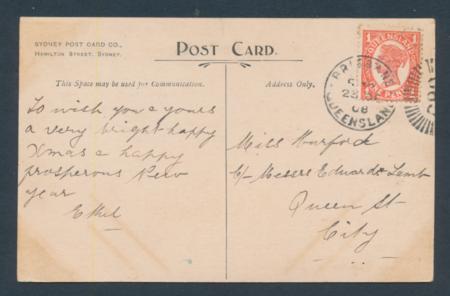 SYDNEY POST CARD CO.,
HAMILTON STREET, SYDNEY.
POST CARD.
This Space may be used for Communication.
Address Only.
To wish you & yours
a very bright happy
Xmas & happy
prosperous New
year
Ethel
Miss
c/o Messrs Edwards & Lamb
Queen St
City
1
1
QUEENSLAND
BRISBANE
08
QUEENSLAND